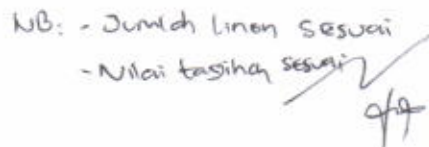 NB: - Jumlah linen sesuai
- Nilai tagihan sesuai